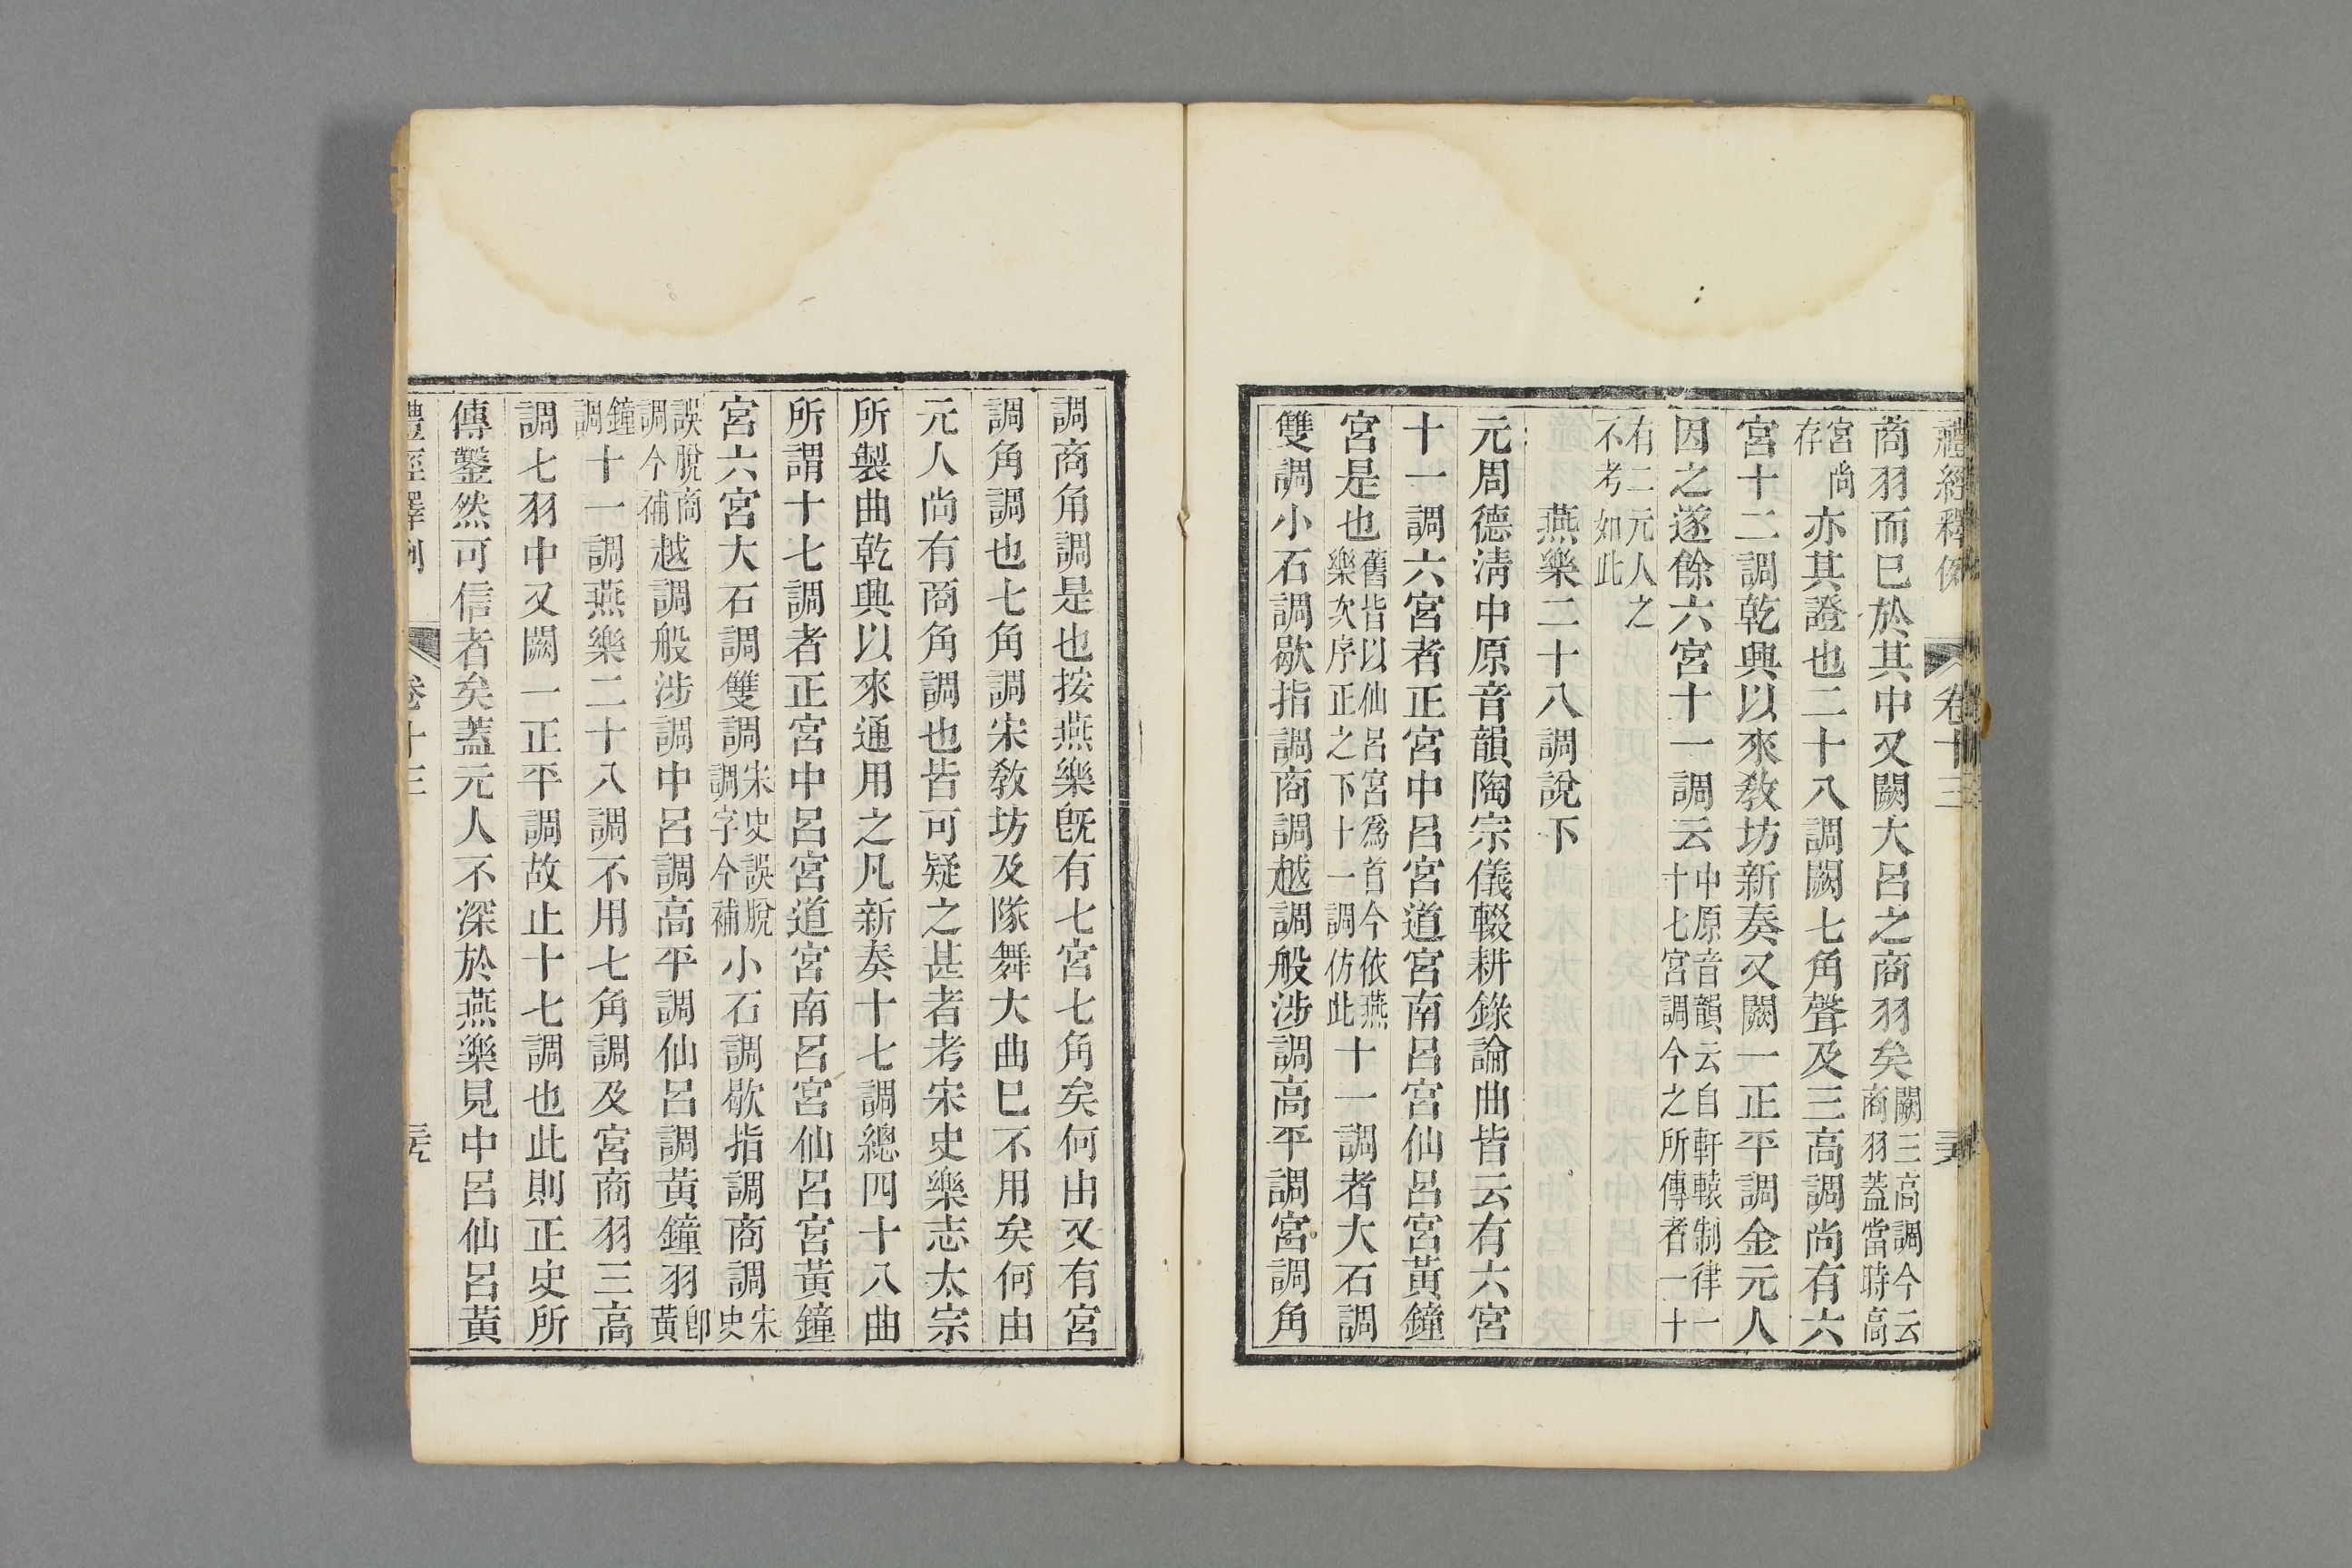 禮經釋例 卷十三
商羽而巳於其中又闕大呂之商羽矣闕三高調今云商羽蓋當時高
宮尚存亦其證也二十八調闕七角聲及三高調尚有六
宮十二調乾興以來敎坊新奏又闕一正平調金元人
因之遂餘六宮十一調云中原音韻云自軒轅制律一十七宮調今之所傳者一十
有二元人之不考如此
燕樂二十八調說下
元周德淸中原音韻陶宗儀輟耕錄論曲皆云有六宮
十一調六宮者正宮中呂宮道宮南呂宮仙呂宮黃鐘
宮是也舊皆以仙呂宮爲首今依燕樂次序正之下十一調仿此十一調者大石調
雙調小石調歇指調商調越調般涉調高平調宮調角
調商角調是也按燕樂旣有七宮七角矣何由又有宮
調角調也七角調宋敎坊及隊舞大曲巳不用矣何由
元人尚有商角調也皆可疑之甚者考宋史樂志太宗
所製曲乾興以來通用之凡新奏十七調總四十八曲
所謂十七調者正宮中呂宮道宮南呂宮仙呂宮黃鐘
宮六宮大石調雙調宋史誤脫調字今補小石調歇指調商調宋史
誤脫商調今補越調般涉調中呂調高平調仙呂調黃鐘羽卽黃
鐘調十一調燕樂二十八調不用七角調及宮商羽三高
調七羽中又闕一正平調故止十七調也此則正史所
傳鑿然可信者矣蓋元人不深於燕樂見中呂仙呂黃
禮經釋例 卷十三